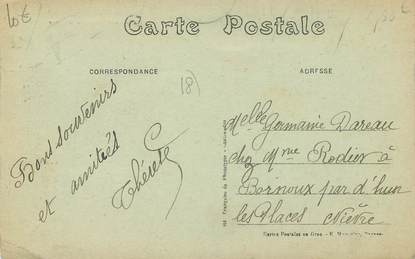 10€
Carte Postale
CORRESPONDANCE
ADRESSE
18)
Bons souvenirs
et amitiés
Thérèse
Melle Germaine Dareau
chez Mme Rodier à
Bornoux par d'hun
les Places Nièvre
Cartes Postales en Gros